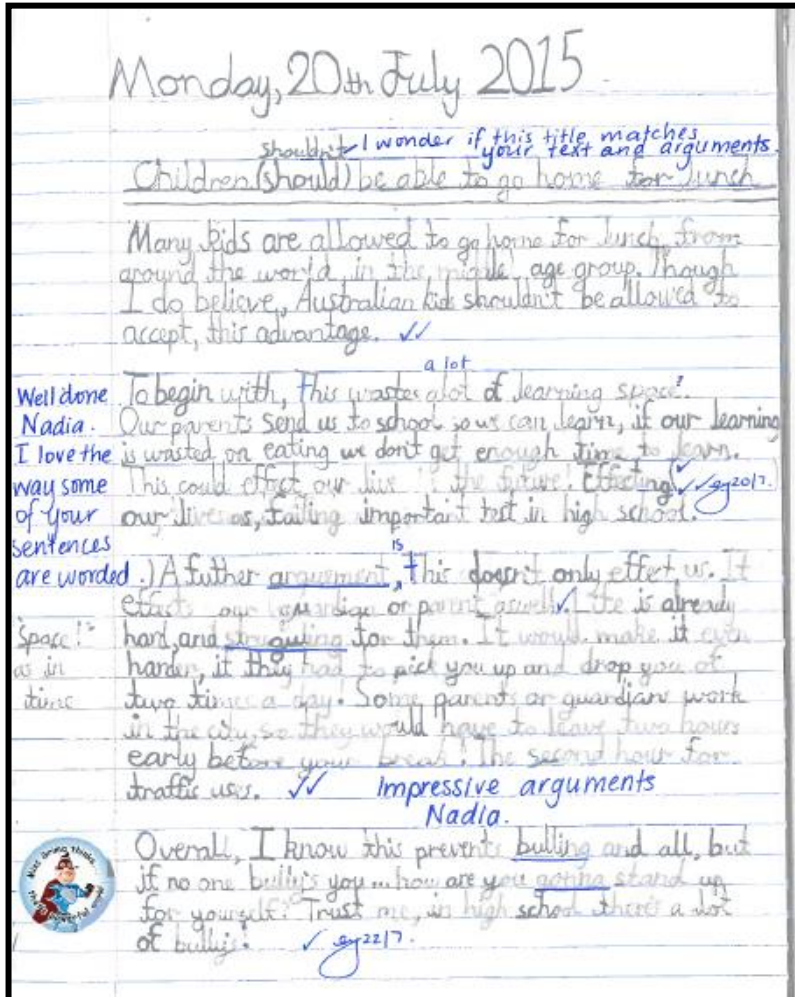 Monday, 20th July 2015
shouldn't I wonder if this title matches
your text and arguments.
Children (should) be able to go home for lunch
Many kids are allowed to go home for lunch, from
around the world, in the middle age group. Though
I do believe, Australian kids shouldn't be allowed to
accept, this advantage.
a lot
Well done
Nadia.
I love the
way some
of your
sentences
are worded.
To begin with, this wastes alot of learning space?
Our parents send us to school so we can learn, if our learning
is wasted on eating we don't get enough time to learn.
This could effect our live the future! Effecting ey20/7.
our lives as, failing important test in high school.
is
) A futher arguement, this doesn't only effect us. It
effects our guardian or parent aswell. Life is already
hard, and struguling for them. It would make it even
harder, if they had to pick you up and drop you of
two times a day! Some parents or guardians work
in the city, so they would have to leave two hours
early before your break! The second hour for
traffic uses.
space!
as in
time
Impressive arguments
Nadia.
Overall, I know this prevents bulling and all, but
if no one bully's you...how are you gonna stand up
for yourself? Trust me, in high school there's a lot
of bully's! ey22/7